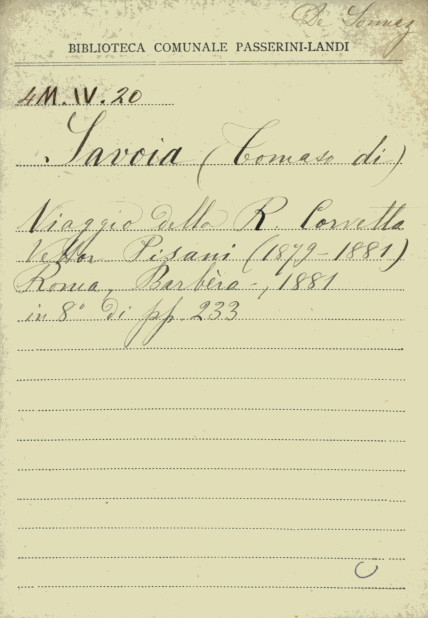 De Sonnaz
BIBLIOTECA COMUNALE PASSERINI-LANDI
4M.IV.20
Savoia (Tomaso di)
Viaggio della R. Corvetta
Vettor Pisani (1879-1881)
Roma, Barbèra-, 1881
in 8° di pp. 233